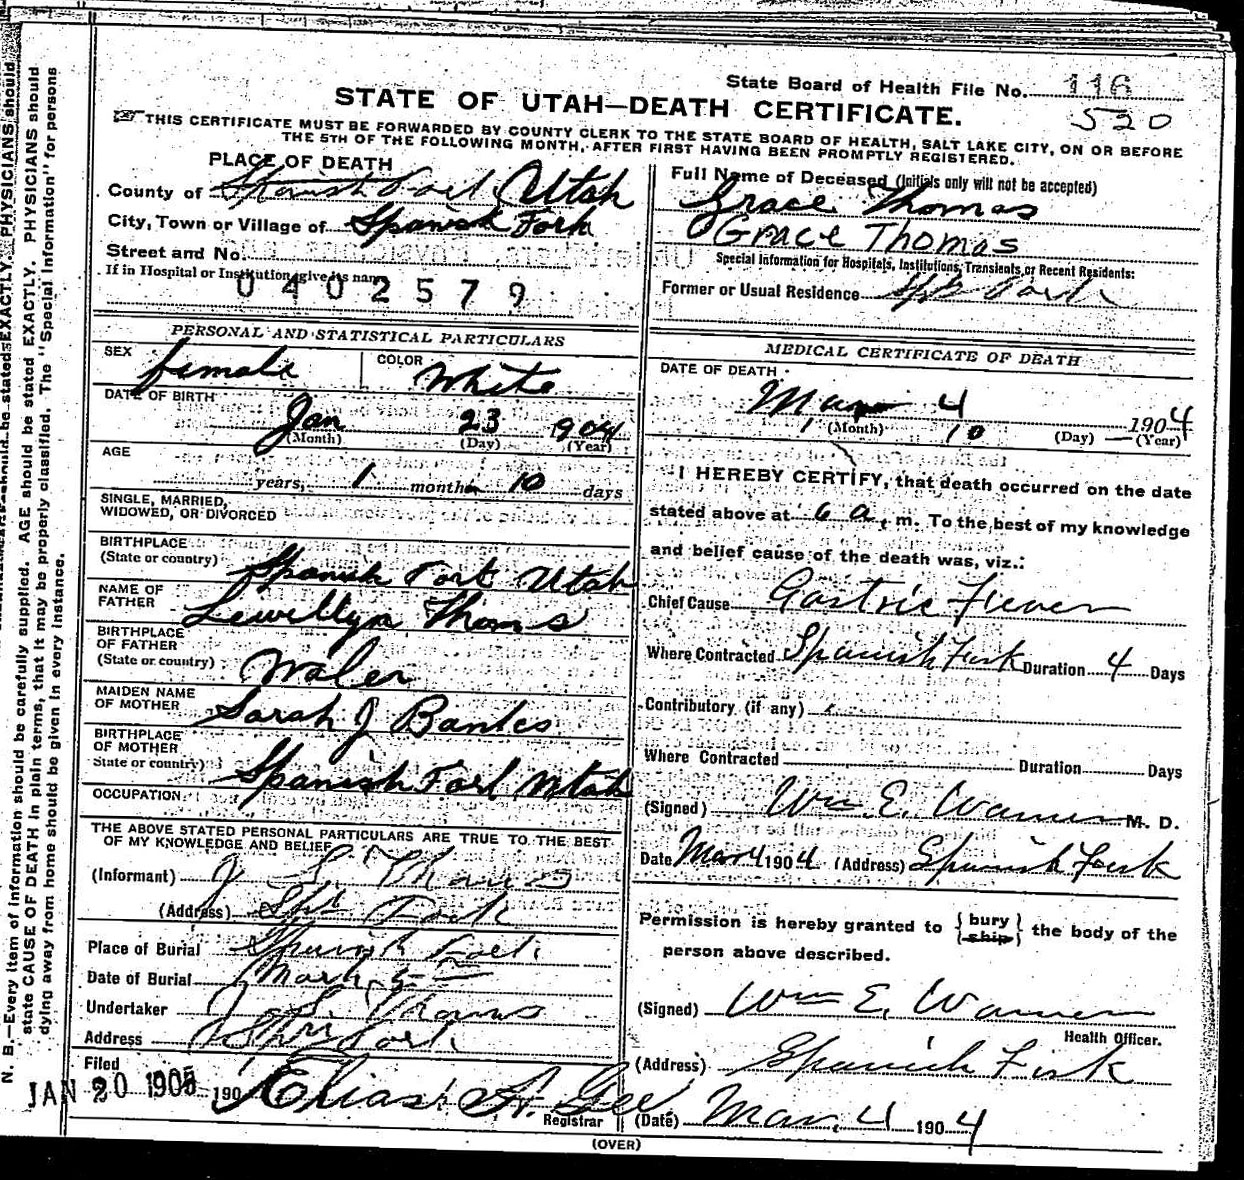 N. B.—Every item of Information should be carefully supplied. AGE should be stated EXACTLY. PHYSICIANS should
state CAUSE OF DEATH in plain terms, that it may be properly classified. The "Special Information" for persons
dying away from home should be given in every instance.
State Board of Health File No. 116
520
STATE OF UTAH—DEATH CERTIFICATE.
THIS CERTIFICATE MUST BE FORWARDED BY COUNTY CLERK TO THE STATE BOARD OF HEALTH, SALT LAKE CITY, ON OR BEFORE
THE 5TH OF THE FOLLOWING MONTH, AFTER FIRST HAVING BEEN PROMPTLY REGISTERED.
PLACE OF DEATH
County of Spanish Fork Utah
City, Town or Village of Spanish Fork
Street and No.
If in Hospital or Institution, give its name
0402579
Full Name of Deceased (Initials only will not be accepted)
Grace Thomas
Grace Thomas
Special Information for Hospitals, Institutions, Transients, or Recent Residents:
Former or Usual Residence Spa Fork
PERSONAL AND STATISTICAL PARTICULARS
SEX female COLOR White
DATE OF BIRTH
Jan 23 1904
(Month) (Day) (Year)
AGE
years, 1 months 10 days
SINGLE, MARRIED,
WIDOWED, OR DIVORCED
BIRTHPLACE
(State or country) Spanish Fork Utah
NAME OF
FATHER Lewellyn Thoms
BIRTHPLACE
OF FATHER
(State or country) Wales
MAIDEN NAME
OF MOTHER Sarah J Banks
BIRTHPLACE
OF MOTHER
State or country) Spanish Fork Utah
OCCUPATION
THE ABOVE STATED PERSONAL PARTICULARS ARE TRUE TO THE BEST
OF MY KNOWLEDGE AND BELIEF
(Informant) J S Thomas
(Address) Spa Fork
Place of Burial Spanish Fork
Date of Burial March 5
Undertaker J S. Thomas
Address Spa Fork
Filed
JAN 20 1905 190 Elias A. Gee
Registrar
MEDICAL CERTIFICATE OF DEATH
DATE OF DEATH
Mar 4 1904
(Month) 10 (Day) (Year)
I HEREBY CERTIFY, that death occurred on the date
stated above at 6 a. m. To the best of my knowledge
and belief cause of the death was, viz.:
Chief Cause Gastric Fever
Where Contracted Spanish Fork Duration 4 Days
Contributory (if any)
Where Contracted Duration Days
(Signed) Wm. E. Warner M. D.
Date Mar 4 1904 (Address) Spanish Fork
Permission is hereby granted to { bury ship } the body of the
person above described.
(Signed) Wm E. Warner
Health Officer.
(Address) Spanish Fork
(Date) Mar. 4 1904
(OVER)